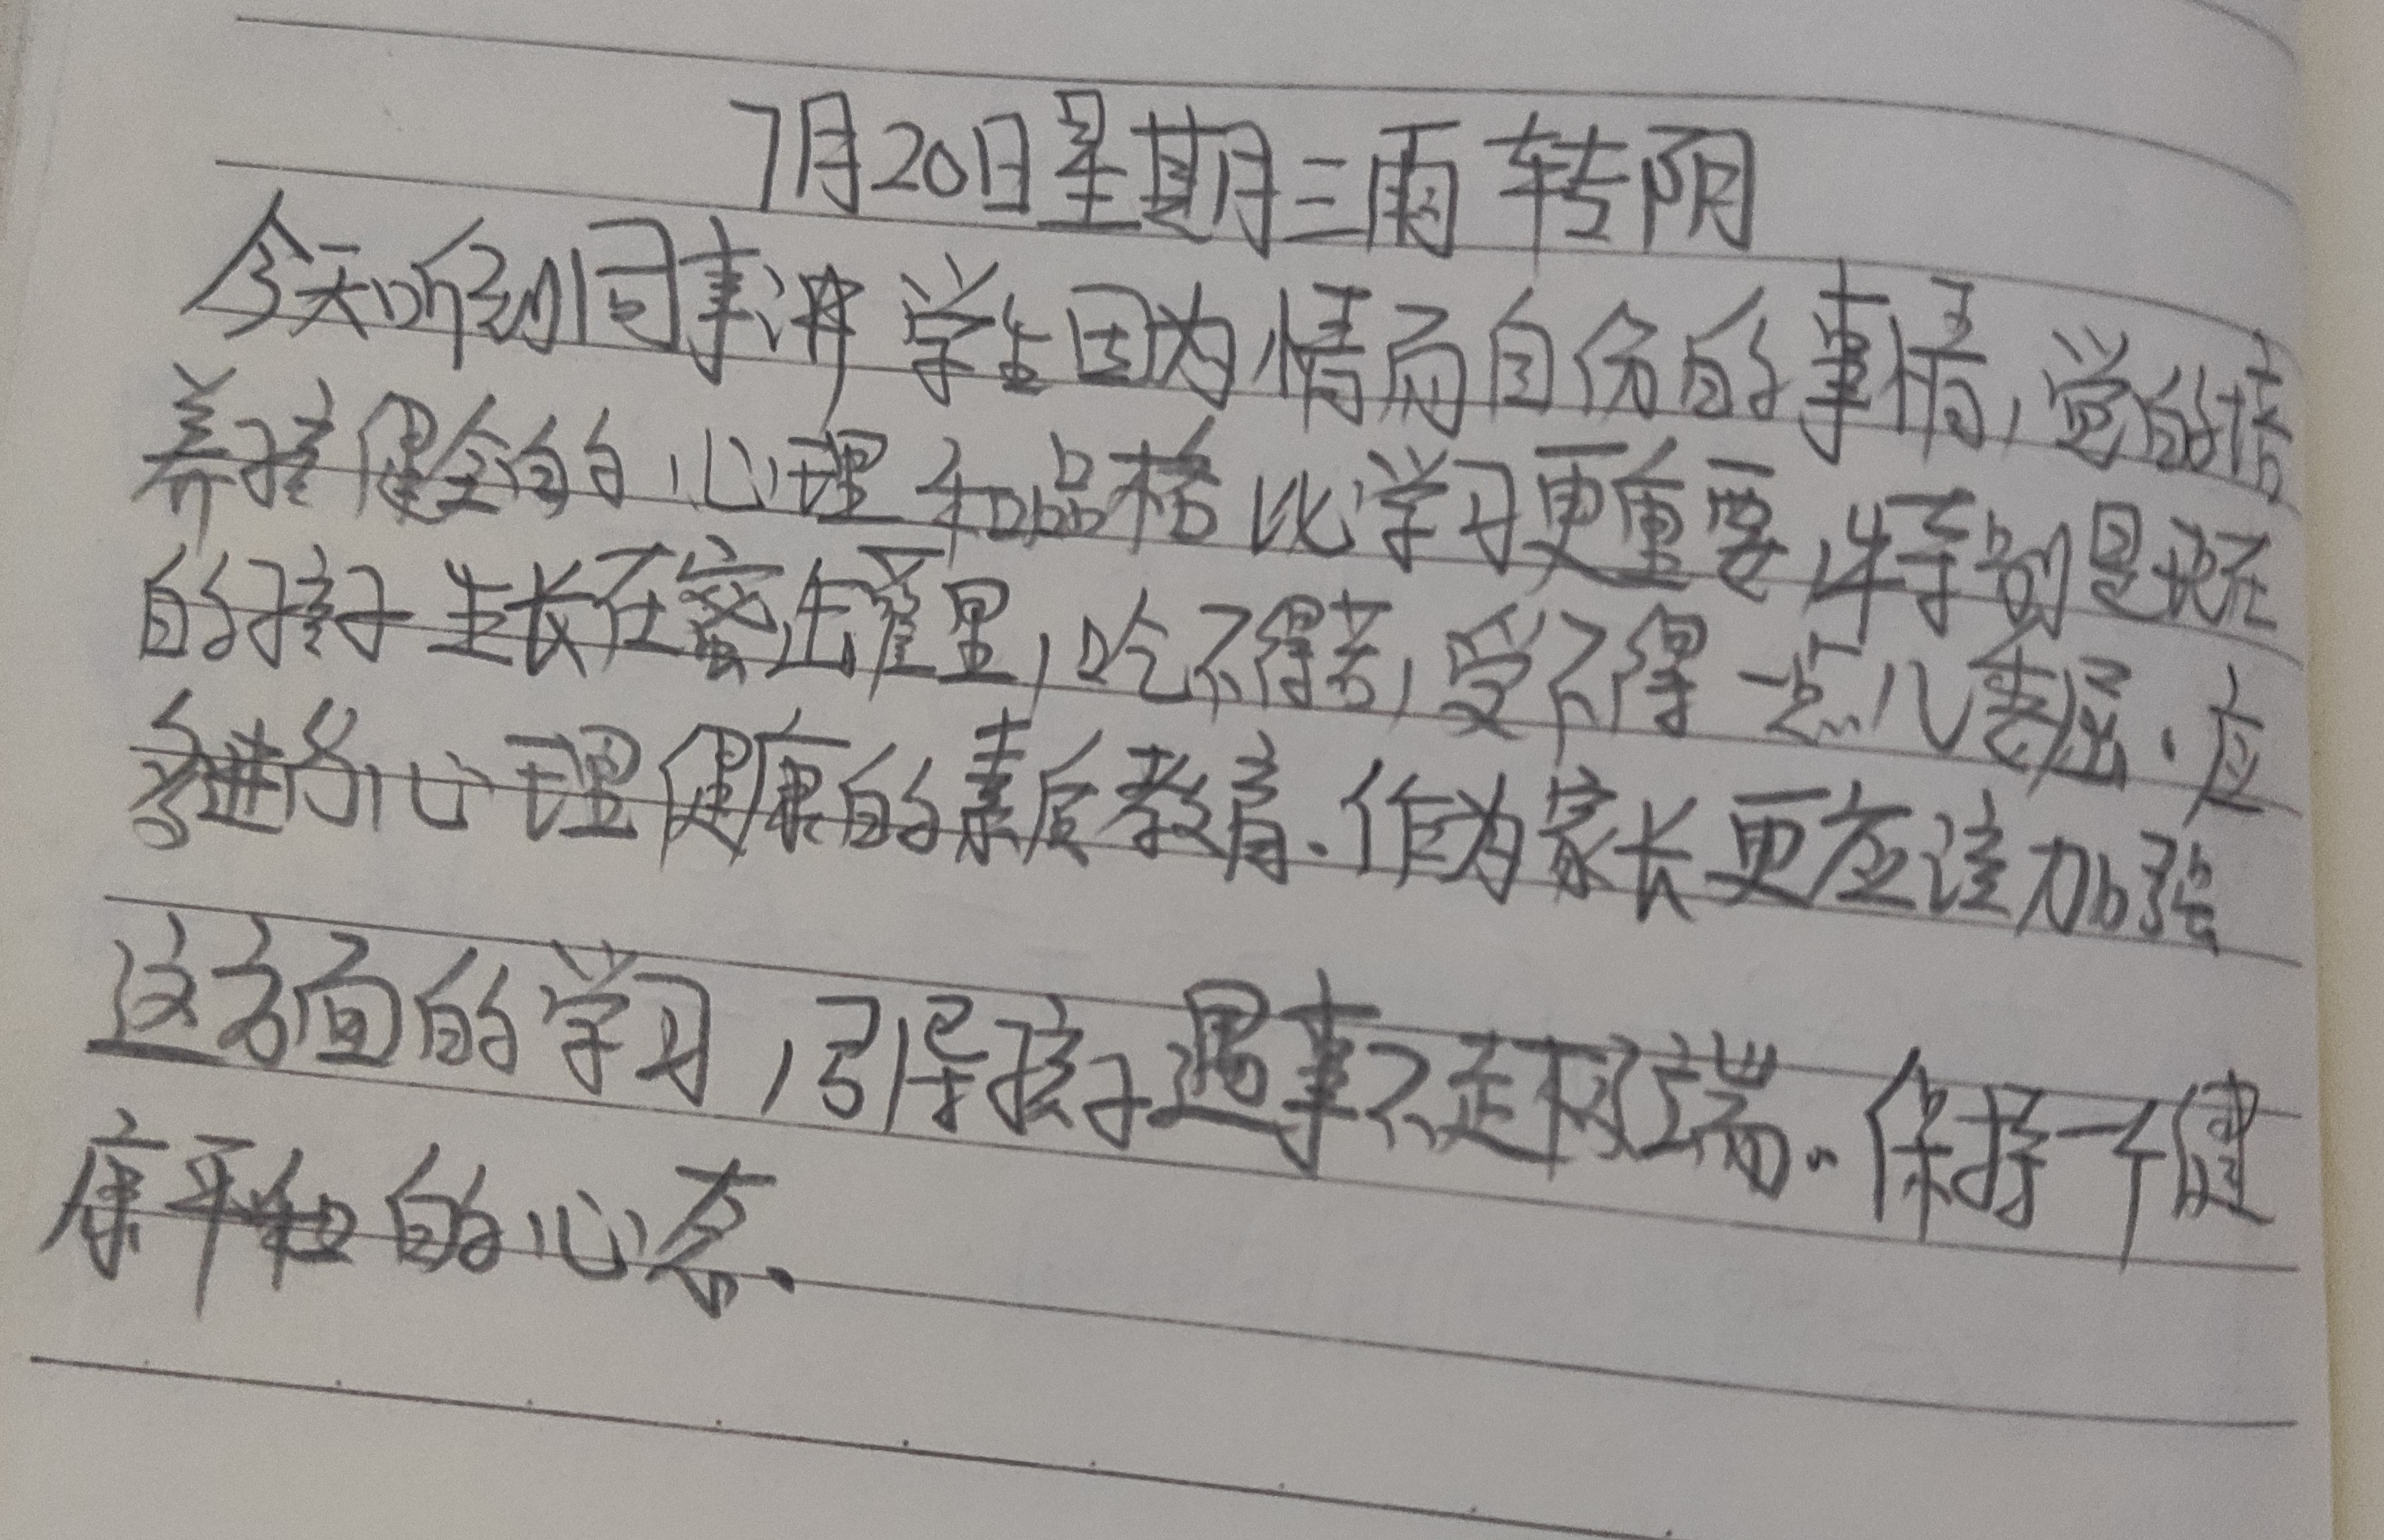 7月20日星期三雨转阴
今天听到同事讲学生因为情而自伤的事情,觉的培
养孩健全的心理和品格比学习更重要,特别是现在
的孩子生长在蜜罐里,吃不得苦,受不得一点儿委屈.应
多进行心理健康的素质教育.作为家长更应该加强
这方面的学习,引导孩子遇事不走极端.保持一个健
康平和的心态.